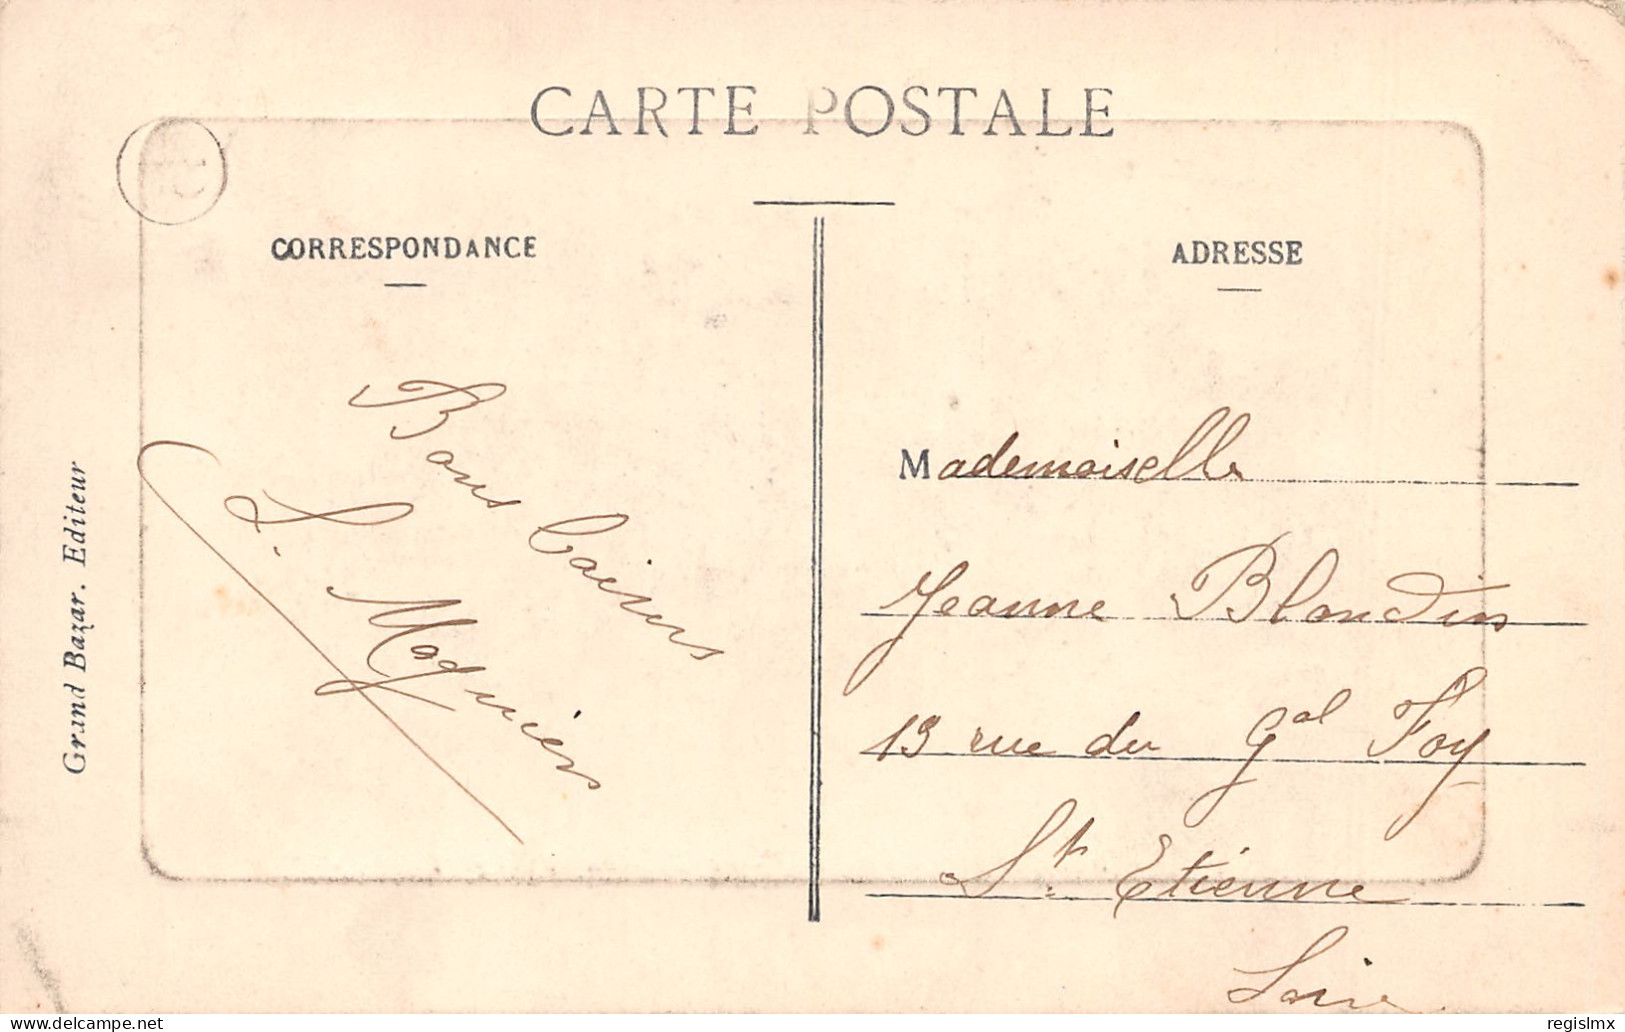 CARTE POSTALE
CORRESPONDANCE
ADRESSE
Bons baisers
Mademoiselle
Jeanne Blondin
13 rue du Gal Foy
St. Etienne
Loire
Grand Bazar. Editeur
delcampe.net
regislmx